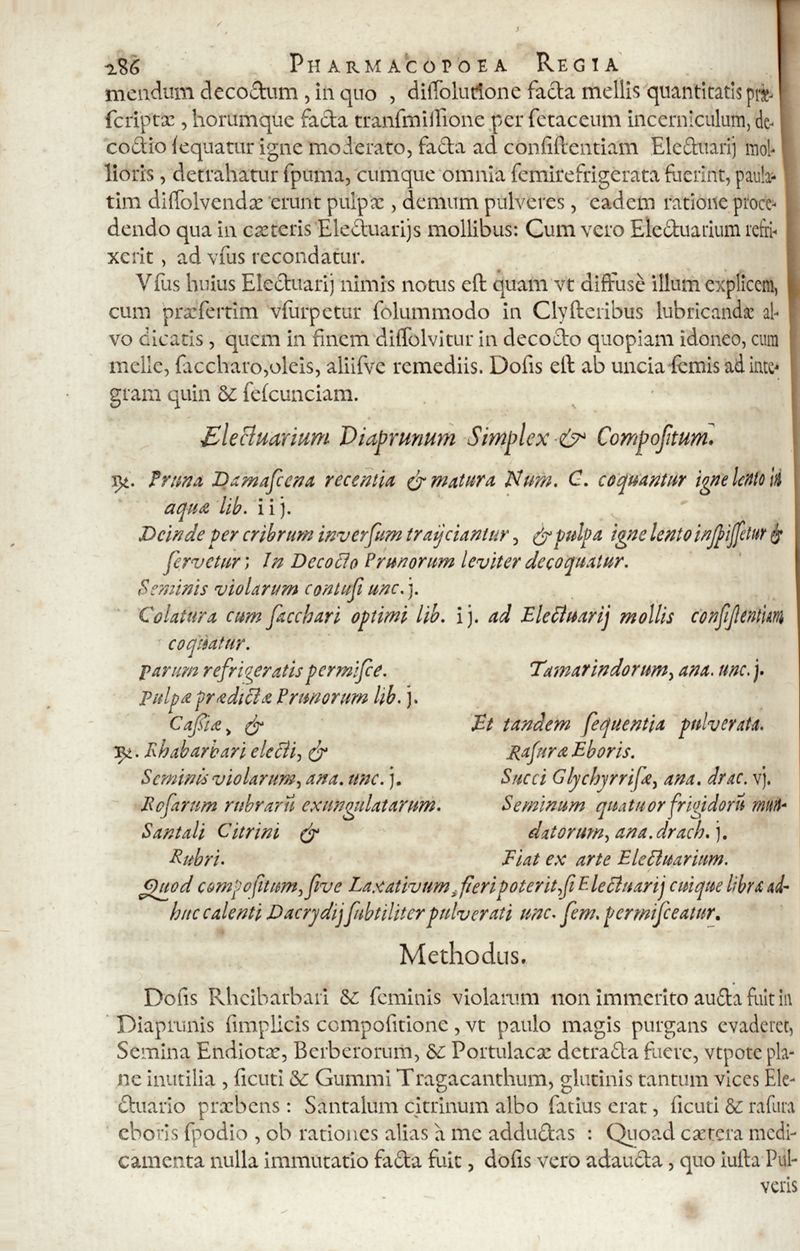 286 PHARMACOPOEA REGIA
mendum decoctum, in quo , dissolutione facta mellis quantitatis præ-
scriptæ, horumque facta transmissione per setaceum incerniculum, de-
coctio sequatur igne moderato, facta ad consistentiam Electuarij mol-
lioris, detrahatur spuma, cumque omnia semirefrigerata fuerint, paula-
tim dissolvendæ erunt pulpæ , demum pulveres, eadem ratione proce-
dendo qua in cæteris Electuarijs mollibus: Cum vero Electuarium refri-
xerit, ad vsus recondatur.
Vsus huius Electuarij nimis notus est quam vt diffusè illum explicem,
cum præsertim vsurpetur solummodo in Clysteribus lubricandæ al-
vo dicatis, quem in finem dissolvitur in decocto quopiam idoneo, cum
melle, saccharo,oleis, aliisve remediis. Dosis est ab uncia semis ad inte-
gram quin & sescunciam.
Electuarium Diaprunum Simplex & Compositum.
℞. Pruna Damascena recentia & matura Num. C. coquantur igne lento in
aquæ lib. iij.
Deinde per cribrum inversum traijciantur, & pulpa igne lento inspissetur &
servetur; In Decocto Prunorum leviter decoquatur.
Seminis violarum contusi unc. j.
Colatura cum sacchari optimi lib. ij. ad Electuarij mollis consistentiam
coquatur.
Parum refrigeratis permisce.
Pulpæ prædictæ Prunorum lib. j.
Cassiæ, &
Tamarindorum, ana. unc. j.
Et tandem sequentia pulverata.
℞. Rhabarbari electi, &
Seminis violarum, ana. unc. j.
Rosarum rubrarū exungulatarum.
Santali Citrini &
Rubri.
Rasuræ Eboris.
Succi Glychyrrisæ, ana. drac. vj.
Seminum quatuor frigidorū mun-
datorum, ana. drach. j.
Fiat ex arte Electuarium.
Quod compositum, sive Laxativum, fieri poterit, si Electuarij cuique libræ ad-
huc calenti Dacrydij subtiliter pulverati unc. sem. permisceatur.
Methodus.
Dosis Rheibarbari & seminis violarum non immerito aucta fuit in
Diaprunis simplicis compositione, vt paulo magis purgans evaderet,
Semina Endiotæ, Berberorum, & Portulacæ detracta fuere, vtpote pla-
ne inutilia , sicuti & Gummi Tragacanthum, glutinis tantum vices Ele-
ctuario præbens: Santalum citrinum albo satius erat, sicuti & rasura
eboris spodio , ob rationes alias à me adductas : Quoad cætera medi-
camenta nulla immutatio facta fuit, dosis vero adaucta, quo iusta Pul-
veris